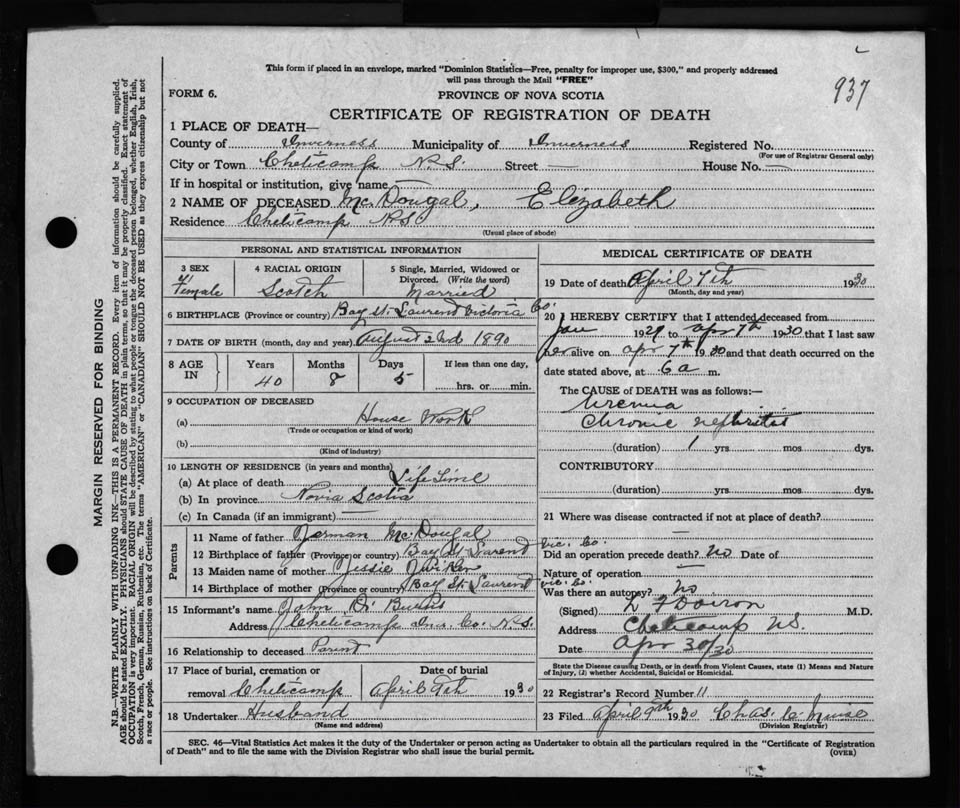 This form if placed in an envelope, marked "Dominion Statistics—Free, penalty for improper use, $300," and properly addressed
will pass through the Mail "FREE"
937
FORM 6.
PROVINCE OF NOVA SCOTIA
CERTIFICATE OF REGISTRATION OF DEATH
1 PLACE OF DEATH—
County of Inverness Municipality of Inverness Registered No.
(For use of Registrar General only)
City or Town Cheticamp N.S. Street House No. —
If in hospital or institution, give name —
2 NAME OF DECEASED McDougal, Elizabeth
Residence Cheticamp N.S.
(Usual place of abode)
PERSONAL AND STATISTICAL INFORMATION
3 SEX
Female
4 RACIAL ORIGIN
Scotch
5 Single, Married, Widowed or
Divorced. (Write the word)
Married
6 BIRTHPLACE (Province or country) Bay St. Laurend Victoria Co.
7 DATE OF BIRTH (month, day and year) August 1890
8 AGE IN
Years Months Days If less than one day,
40 8 5 hrs. or min.
9 OCCUPATION OF DECEASED
(a) House Work
(Trade or occupation or kind of work)
(b)
(Kind of industry)
10 LENGTH OF RESIDENCE (in years and months)
(a) At place of death Life Time
(b) In province Novia Scotia
(c) In Canada (if an immigrant) —
Parents
11 Name of father McDougal
12 Birthplace of father (Province or country) Bay St. Larend Vic. Co.
13 Maiden name of mother Jessie
14 Birthplace of mother (Province or country) Bay St. Laurend Vic. Co.
15 Informant's name John D. Burns
Address Cheticamp Inv. Co. N.S.
16 Relationship to deceased Parent
17 Place of burial, cremation or Date of burial
removal Cheticamp April 9th 1930
18 Undertaker Husband
(Name and address)
MEDICAL CERTIFICATE OF DEATH
19 Date of death April 7th 1930
(Month, day and year)
20 I HEREBY CERTIFY that I attended deceased from
Jan 1929 to Apr 7th 1930 that I last saw
her alive on Apr 7th 1930 and that death occurred on the
date stated above, at 6 a m.
The CAUSE of DEATH was as follows:—
Uremia
Chronic nephritis
(duration) 1 yrs mos dys.
CONTRIBUTORY
(duration) yrs. mos. dys.
21 Where was disease contracted if not at place of death?
—
Did an operation precede death? No Date of
Nature of operation —
Was there an autopsy? No
(Signed) L F Doiron M.D.
Address Cheticamp N.S.
Date Apr 30/30
State the Disease causing Death, or in death from Violent Causes, state (1) Means and Nature
of Injury, (2) whether Accidental, Suicidal or Homicidal.
22 Registrar's Record Number 11
23 Filed April 9th 1930 Chas. Muise
(Division Registrar)
SEC. 46—Vital Statistics Act makes it the duty of the Undertaker or person acting as Undertaker to obtain all the particulars required in the "Certificate of Registration
of Death" and to file the same with the Division Registrar who shall issue the burial permit. (OVER)
MARGIN RESERVED FOR BINDING
N.B.—WRITE PLAINLY WITH UNFADING INK—THIS IS A PERMANENT RECORD. Every item of information should be carefully supplied.
AGE should be stated EXACTLY. PHYSICIANS should STATE CAUSE OF DEATH in plain terms, so that it may be properly classified. Exact statement of
OCCUPATION is very important. RACIAL ORIGIN will be described by stating to what people or tongue the deceased person belonged, whether English, Irish,
Scotch, French, German, Russian, Ruthenian, etc. The terms "AMERICAN" or "CANADIAN" SHOULD NOT BE USED as they express citizenship but not
a race or people. See instructions on back of Certificate.